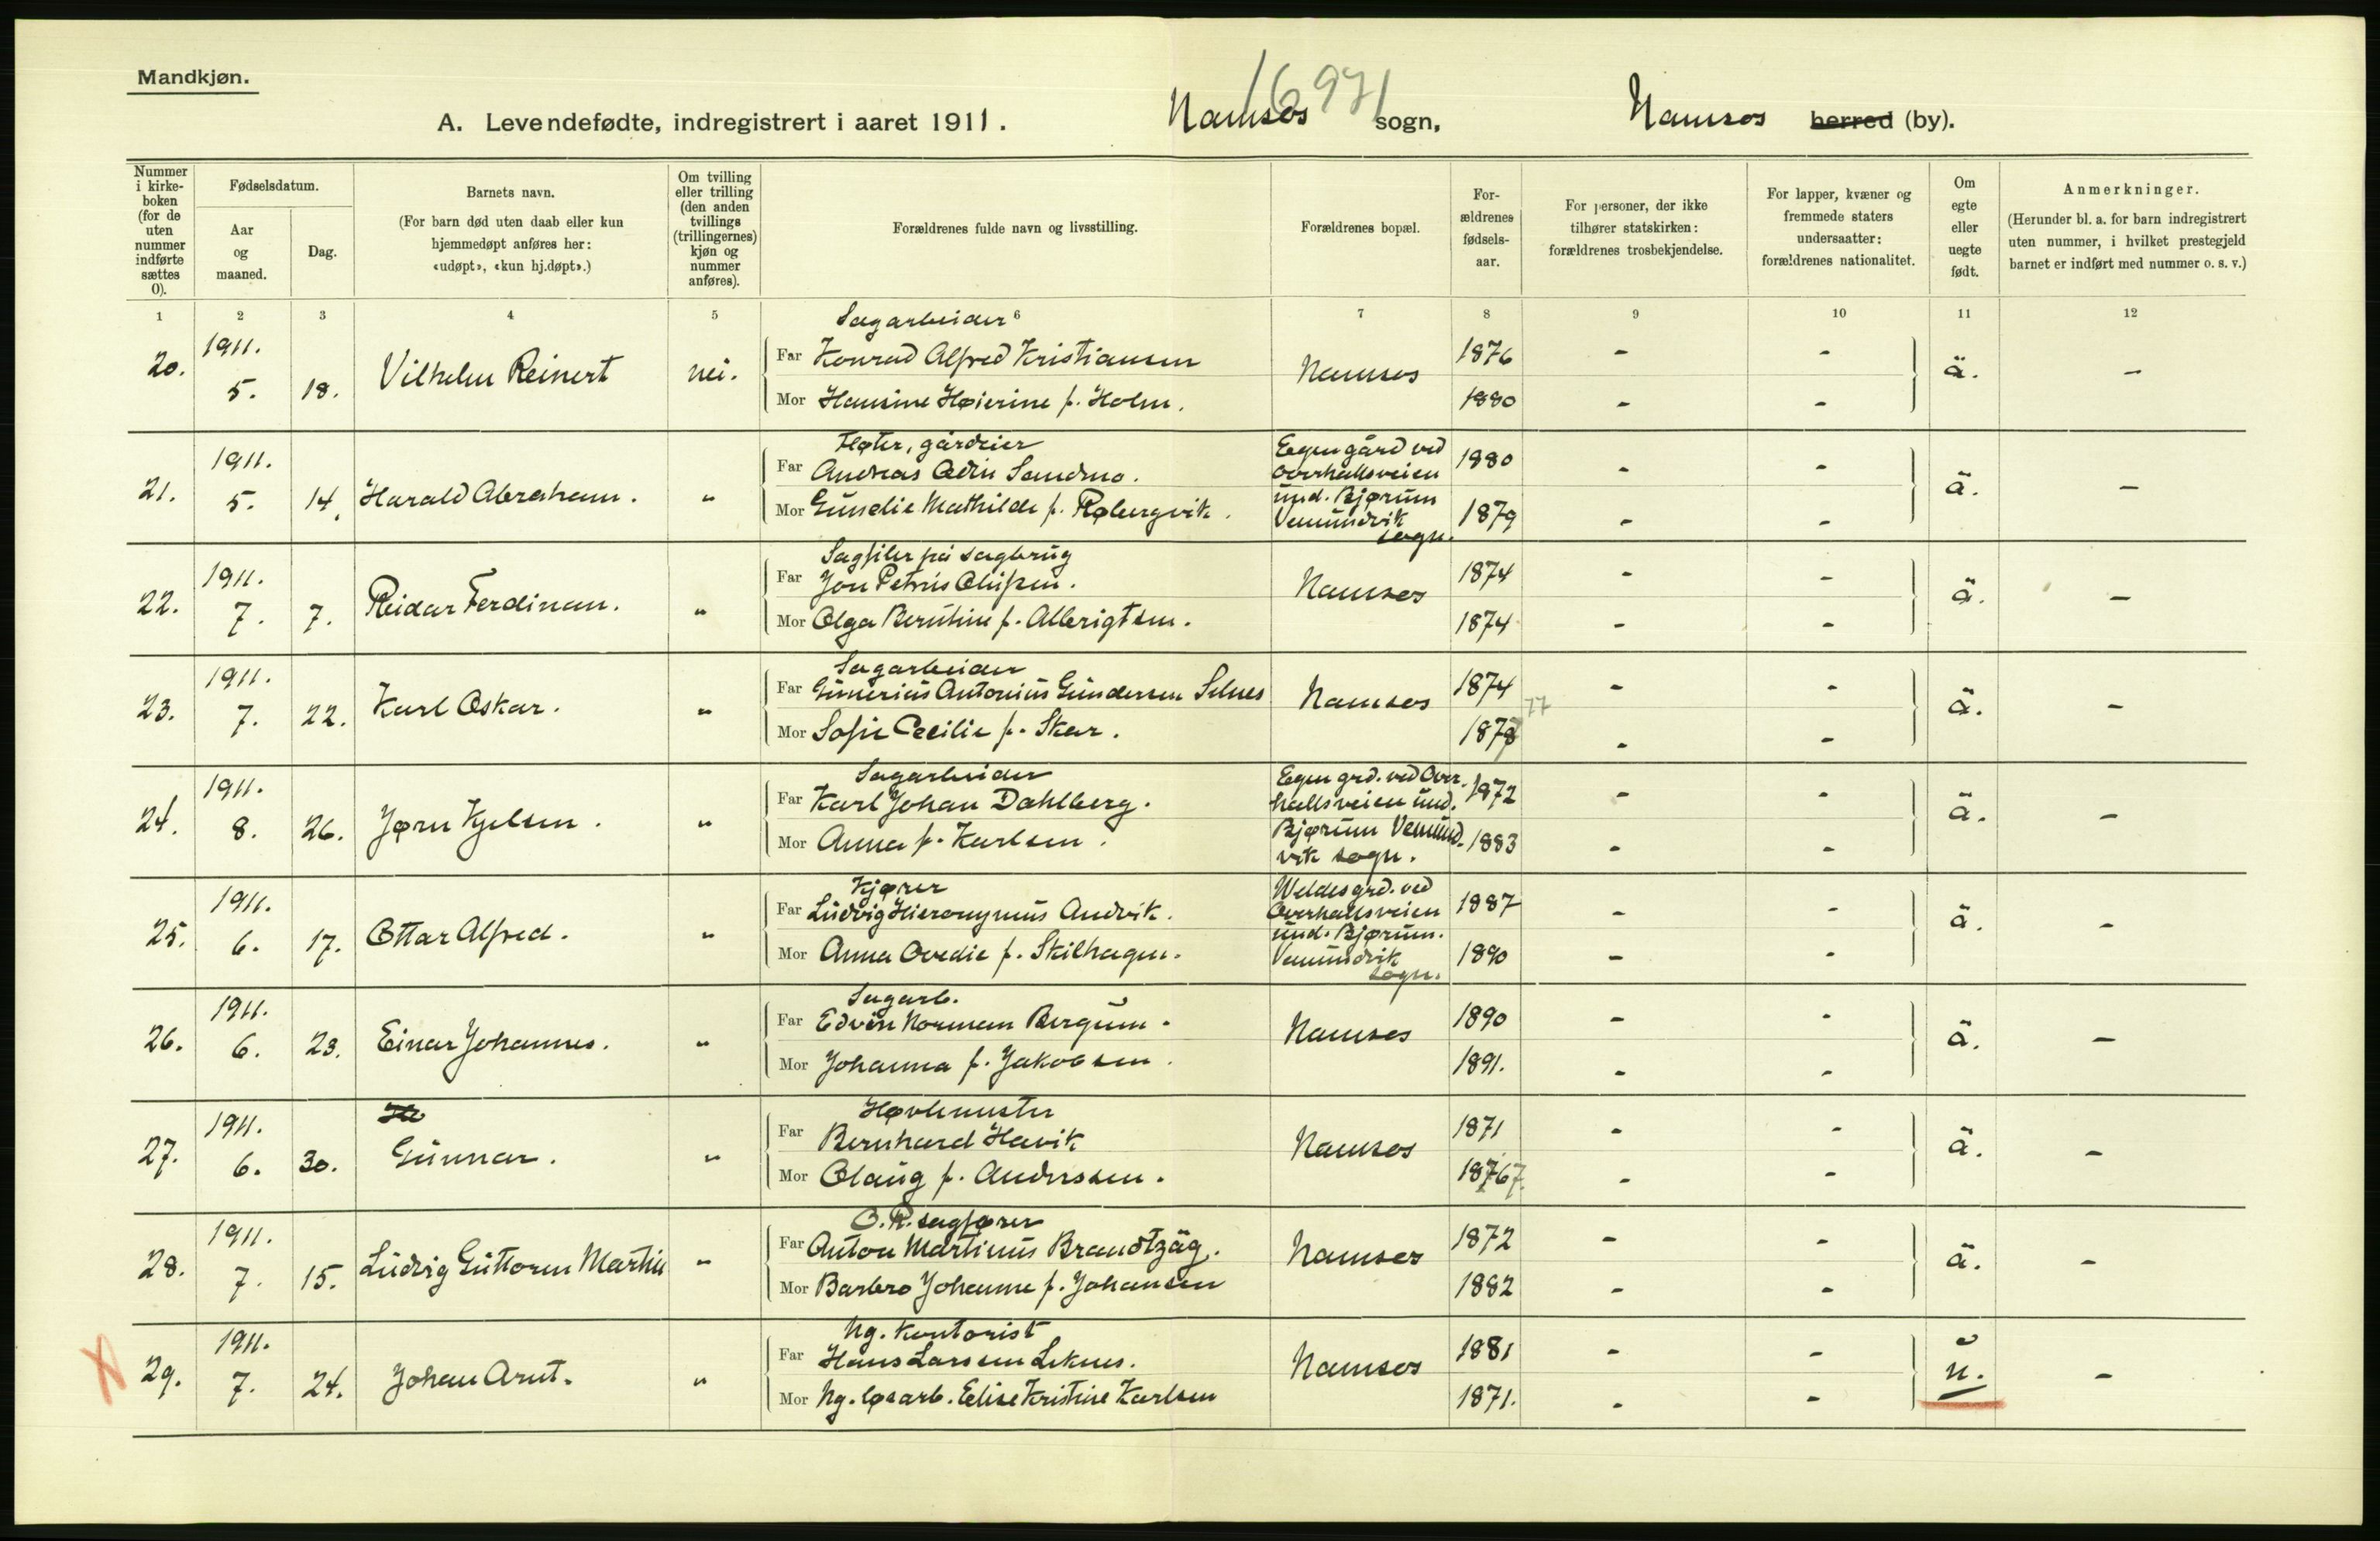 Mandkjøn.
16971
A. Levendefødte, indregistrert i aaret 1911. Namsos sogn, Namsos herred (by).
Nummer i kirkeboken (for de uten nummer indførte sættes 0).
Fødselsdatum.
Aar og maaned.
Dag.
Barnets navn.
(For barn død uten daab eller kun hjemmedøpt anføres her: «udøpt», «kun hj.døpt».)
Om tvilling eller trilling (den anden tvillings (trillingernes) kjøn og nummer anføres).
Forældrenes fulde navn og livsstilling.
Forældrenes bopæl.
For-ældrenes fødsels-aar.
For personer, der ikke tilhører statskirken: forældrenes trosbekjendelse.
For lapper, kvæner og fremmede staters undersaatter: forældrenes nationalitet.
Om egte eller uegte født.
Anmerkninger.
(Herunder bl. a. for barn indregistrert uten nummer, i hvilket prestegjeld barnet er indført med nummer o. s. v.)
1 2 3 4 5 6 7 8 9 10 11 12
Sagarbeider
20. 1911. 5. 18. Vilhelm Reinert nei. Far Konrad Alfred Kristiansen Namsos 1876 - - ä. -
Mor Hansine Høierine f. Holm. 1880 - -
Fløter, gårdeier
21. 1911. 5. 14. Harald Abraham. " Far Andreas Odin Sandmo. Egen gård ved Overhallsveien 1880 - - ä. -
Mor Gunelie Mathilde f. Røbergvik. und. Bjørum Vemundvik sogn. 1879 - -
Sagfiler på sagbrug
22. 1911. 7. 7. Reidar Ferdinan. " Far Jon Petrus Olufsen. Namsos 1874 - - ä. -
Mor Olga Berntine f. Albrigtsen. 1874 - -
Sagarbeider
23. 1911. 7. 22. Karl Oskar. " Far Gunerius Antonius Gundersen Selnes Namsos 1874 - - ä. -
Mor Sofie Cecilie f. Skar. 1878 77 - -
Sagarbeider
24. 1911. 8. 26. Jørn Kjelsen. " Far Karl Johan Dahlberg. Egen grd. ved Over-hallsveien und. 1872 - - ä. -
Mor Anna f. Karlsen. Bjørum Vemund-vik sogn. 1883 - -
Kjører
25. 1911. 6. 17. Ottar Alfred. " Far Ludvig Hieronymus Andvik. Weldes grd. ved Overhallsveien 1887 - - ä. -
Mor Anna Ovedie f. Skilhagen. und. Bjørum. Vemundvik sogn. 1890 - -
Sagarb.
26. 1911. 6. 23. Einar Johannes. " Far Edvin Norman Bergum. Namsos 1890 - - ä. -
Mor Johanna f. Jakobsen. 1891. - -
Høvlemester
27. 1911. 6. 30. Gunnar. " Far Bernhard Havik Namsos 1871 - - ä. -
Mor Olaug f. Anderssen. 18767. - -
O.R. sagfører
28. 1911. 7. 15. Ludvig Guttorm Martin " Far Anton Martinus Brandtzäg. Namsos 1872 - - ä. -
Mor Barbro Johanne f. Johansen 1882 - -
Ng. Kontorist
29. 1911. 7. 24. Johan Arnt. " Far Hans Larssen Leknes. Namsos 1881 - - u. -
Mor Ng. løsarb. Elise Kristine Karlsen 1871. - -